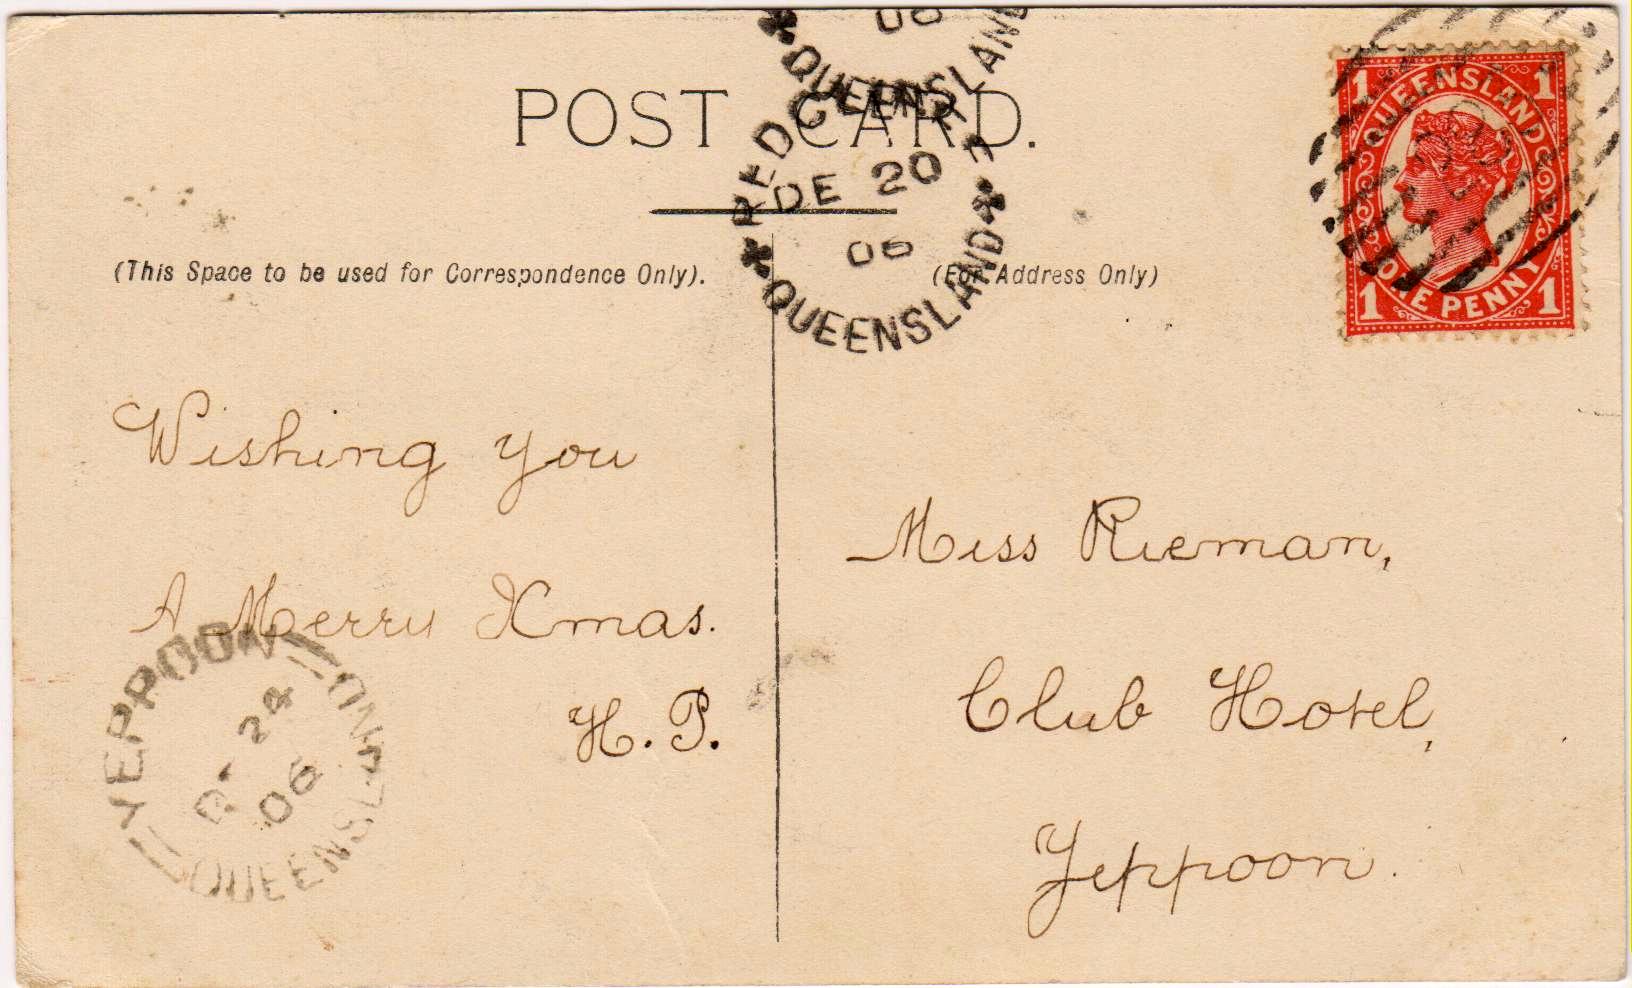 06
QUEENSLAND
POST CARD.
DE 20
06
QUEENSLAND
1 QUEENSLAND 1
1 ONE PENNY 1
(This Space to be used for Correspondence Only).
(For Address Only)
Wishing you
A Merry Xmas.
H. P.
Miss Rieman,
Club Hotel,
Yeppoon.
YEPPOON
24
06
QUEENSLAND